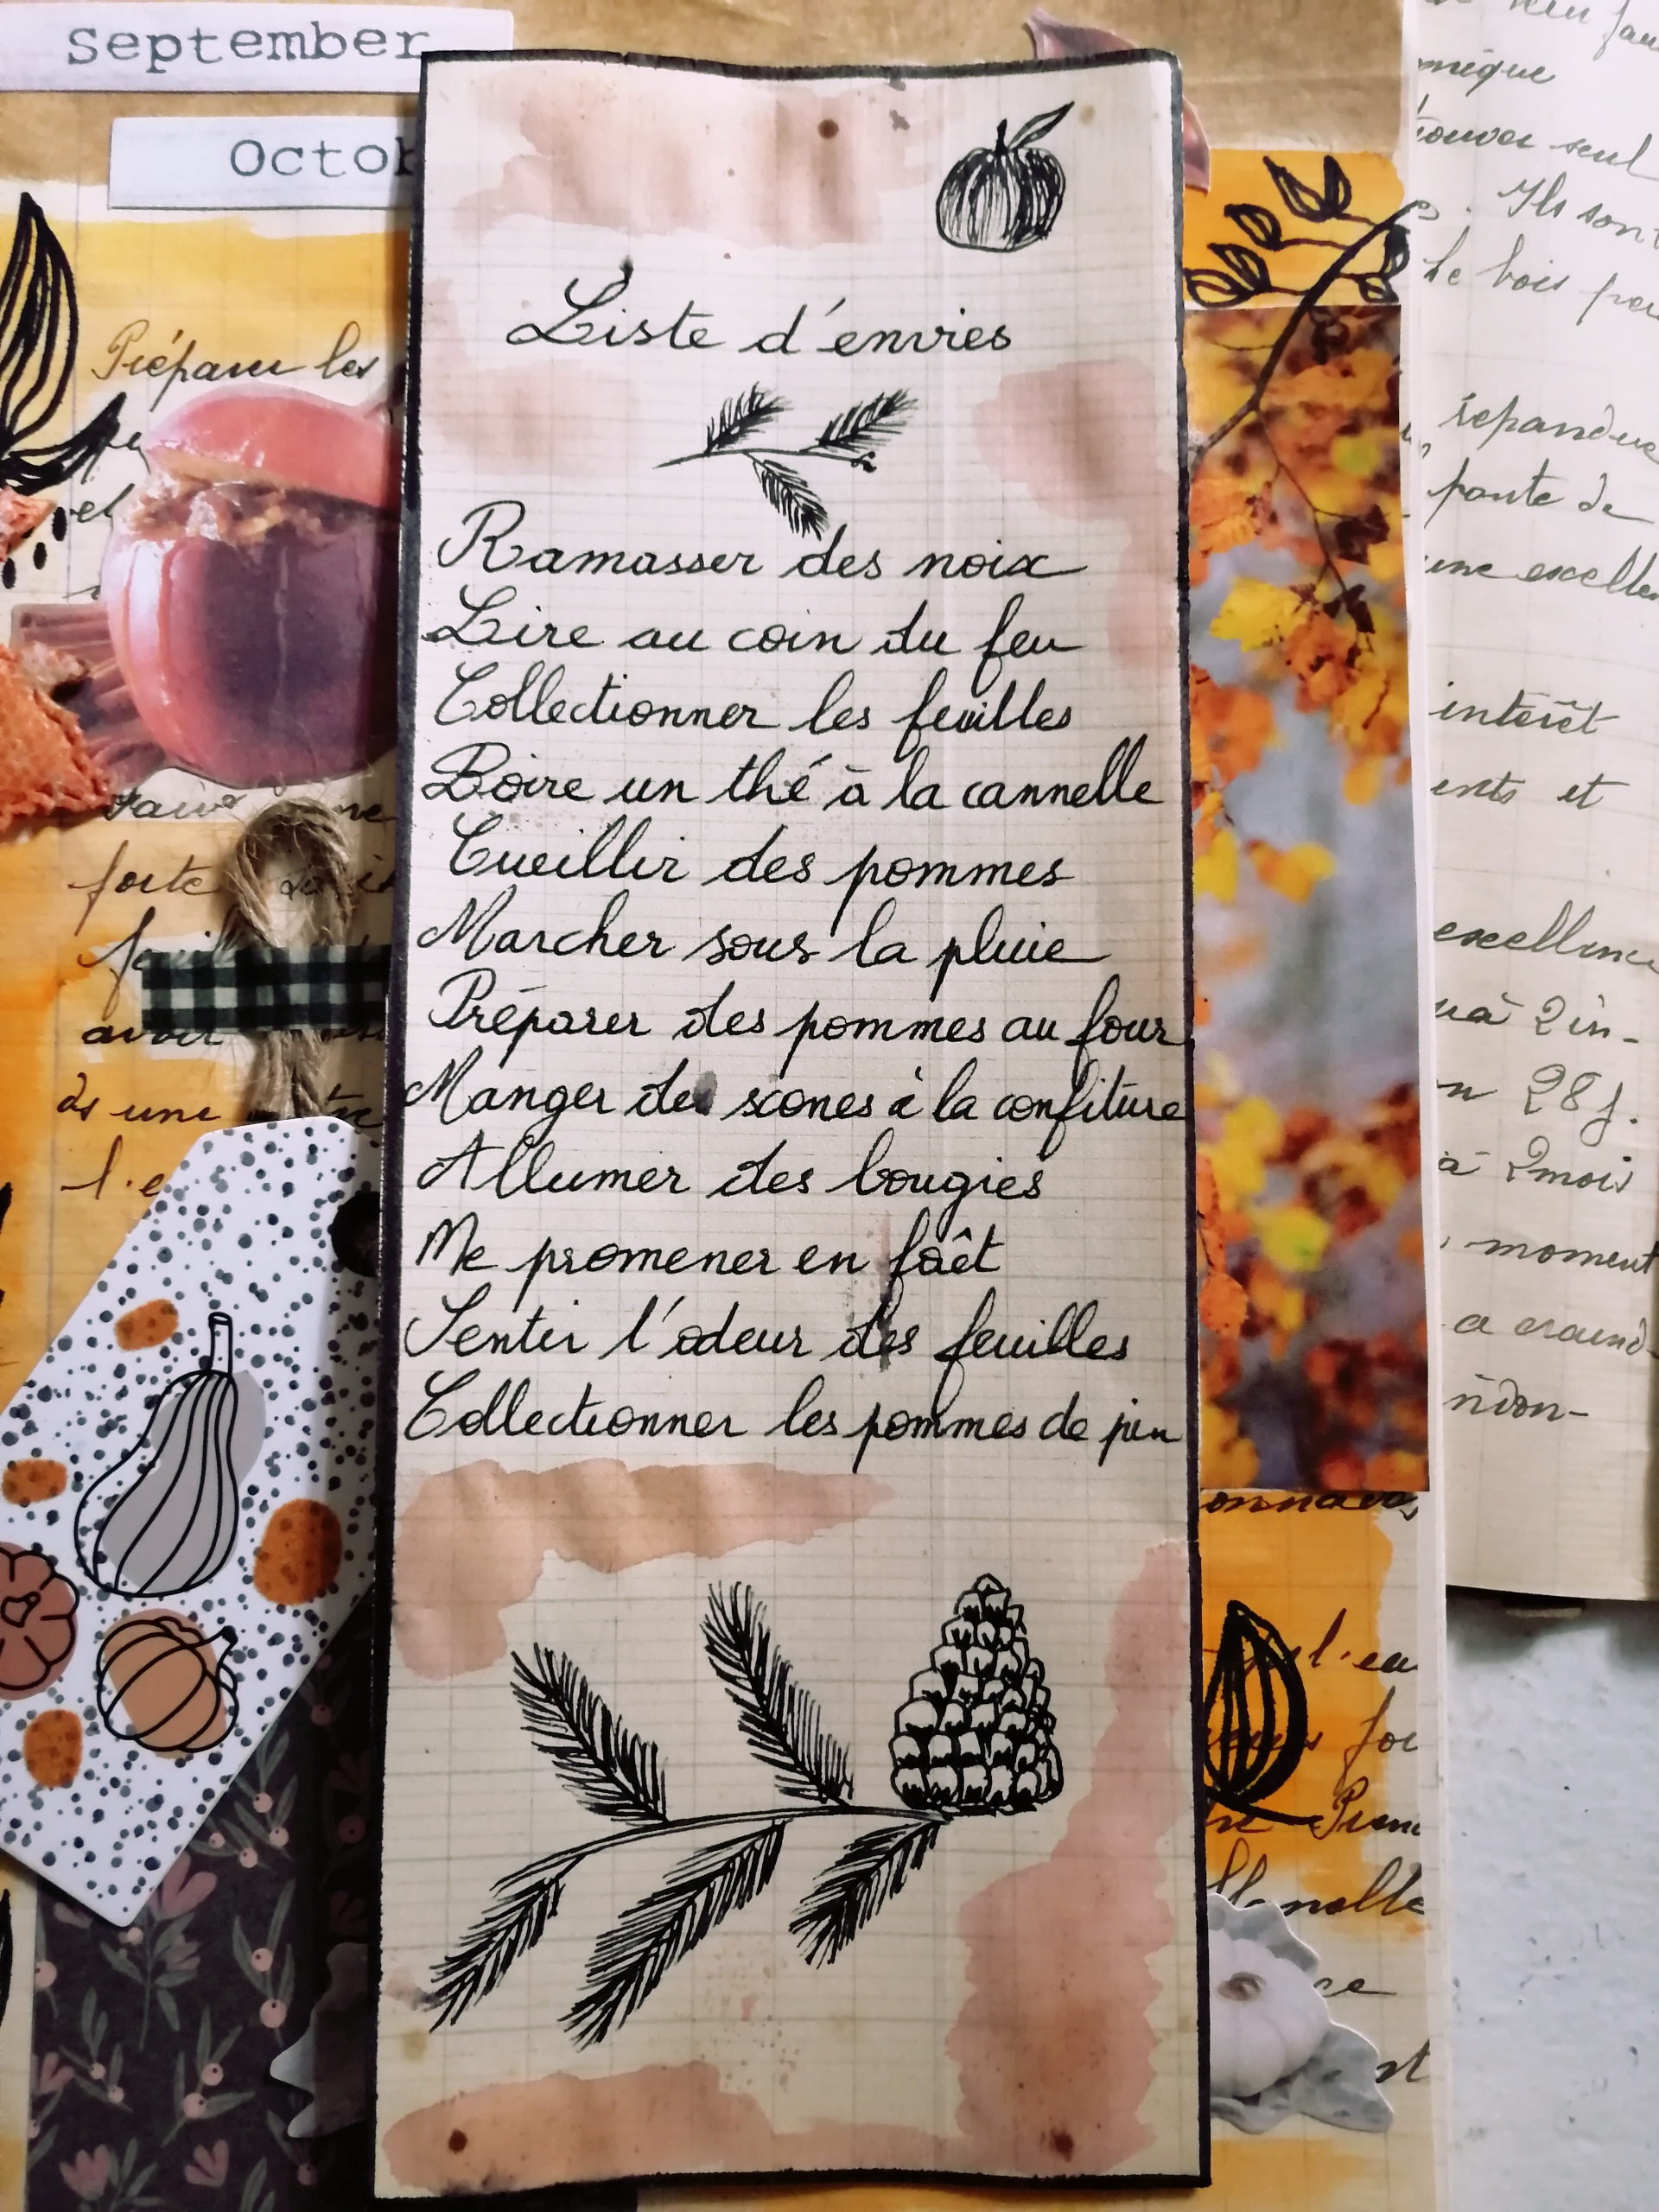 September
Octob
Liste d'envies
Ramasser des noix
Lire au coin du feu
Collectionner les feuilles
Boire un thé à la cannelle
Cueillir des pommes
Marcher sous la pluie
Préparer des pommes au four
Manger des scones à la confiture
Allumer des bougies
Me promener en foêt
Sentir l'odeur des feuilles
Collectionner les pommes de pin
Préparer les
et
forte
avoir
ds une
l'e
mique
trouver seul
Ils sont
le bois
répandue
ponte de
une excellen
intérêt
ents et
excellence
2 in-
28 j.
à 2 mois
moment
a craind-